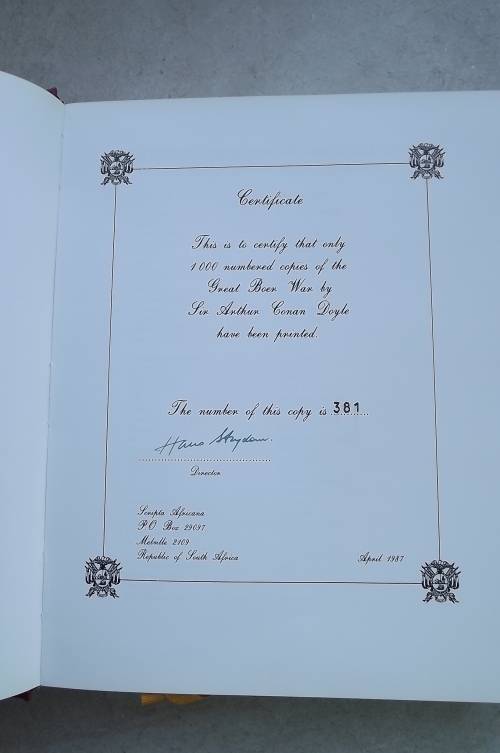 Certificate
This is to certify that only
1000 numbered copies of the
Great Boer War by
Sir Arthur Conan Doyle
have been printed.
The number of this copy is 381
Hans Strydom.
Director
Scripta Africana
P.O Box 29097
Melville 2109
Republic of South Africa
April 1987